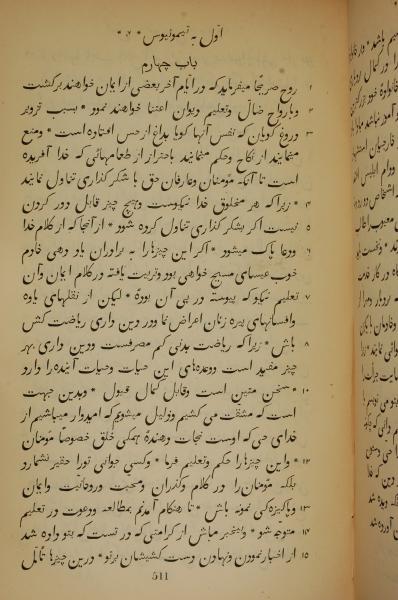 اول به تیموتیوس * ۴ *
باب چهارم
۱ روح صریحًا میفرماید که در ایام آخر بعضی از ایمان خواهند برگشت
۲ و بارواح ضال و تعلیم دیوان اعتنا خواهند نمود * بسبب تزویر
۳ دروغ گویان که نفس آنها گویا بداغ از حس افتاده است * و منع
مینمایند از نکاح و حکم مینمایند باحتراز از طعامهائی که خدا آفریده
است تا آنکه مؤمنان و عارفان حق با شکر گذاری تناول نمایند
۴ * زیرا که هر مخلوق خدا نیکوست و هیچ چیز قابل دور کردن
۵ نیست اگر بشکر گذاری تناول کرده شود * از آنجا که از کلام خدا
۶ و دعا پاک میشود * اگر این چیزها را به برادران یاد دهی خادم
خوب عیسای مسیح خواهی بود و تربیت یافته در کلام ایمان و آن
۷ تعلیم نیکو که پیوسته در پی آن بودهٔ * لیکن از نقلهای یاوه
و افسانهای پیره زنان اعراض نما و در دین داری ریاضت کش
۸ باش * زیرا که ریاضت بدنی کم مصرفست و دین داری بهر
چیز مفید است و وعده‌های این حیات و حیات آینده را دارد
۱۰ * سخن متین است و قابل کمال قبول * و بدین جهت
است که مشقت می کشیم و ذلیل میشویم که امیدوار میباشیم از
خدای حی که اوست نجات دهندهٔ همگی خلق خصوصًا مؤمنان
۱۲ * و این چیزها را حکم و تعلیم فرما * و کسی جوانی تو را حقیر نشمارد
بلکه مؤمنان را در کلام و گذران و محبت و روحانیت و ایمان
و پاکیزه‌گی نمونه باش * تا هنگام آمدنم بمطالعه و دعوت و تعلیم
۱۴ متوجه شو * و بیخبر مباش از کرامتی که در تست که بتو داده شد
۱۵ از اخبار نمودن و نهادن دست کشیشان بر تو * در این چیزها تأمل
511